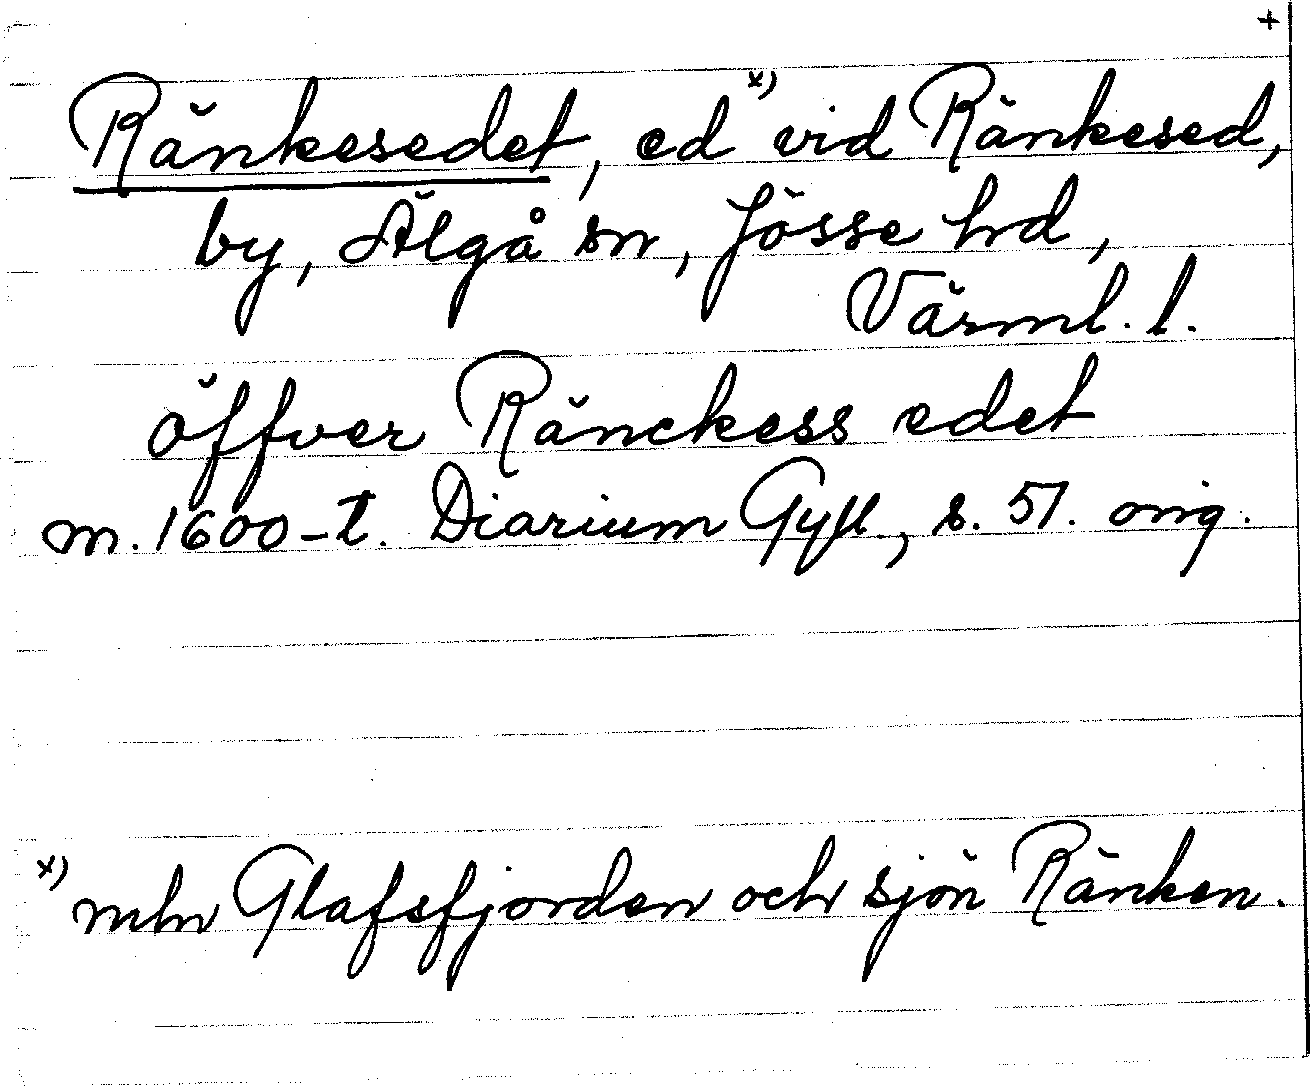 +
Ränkesedet, ed x) vid Ränkesed,
by, Älgå sn, Jösse hd,
Värml. l.
öffver Ränckess edet
m. 1600-t. Diarium Gyll., s. 51. orig.
x) mln Glafsfjorden och sjön Ränken.